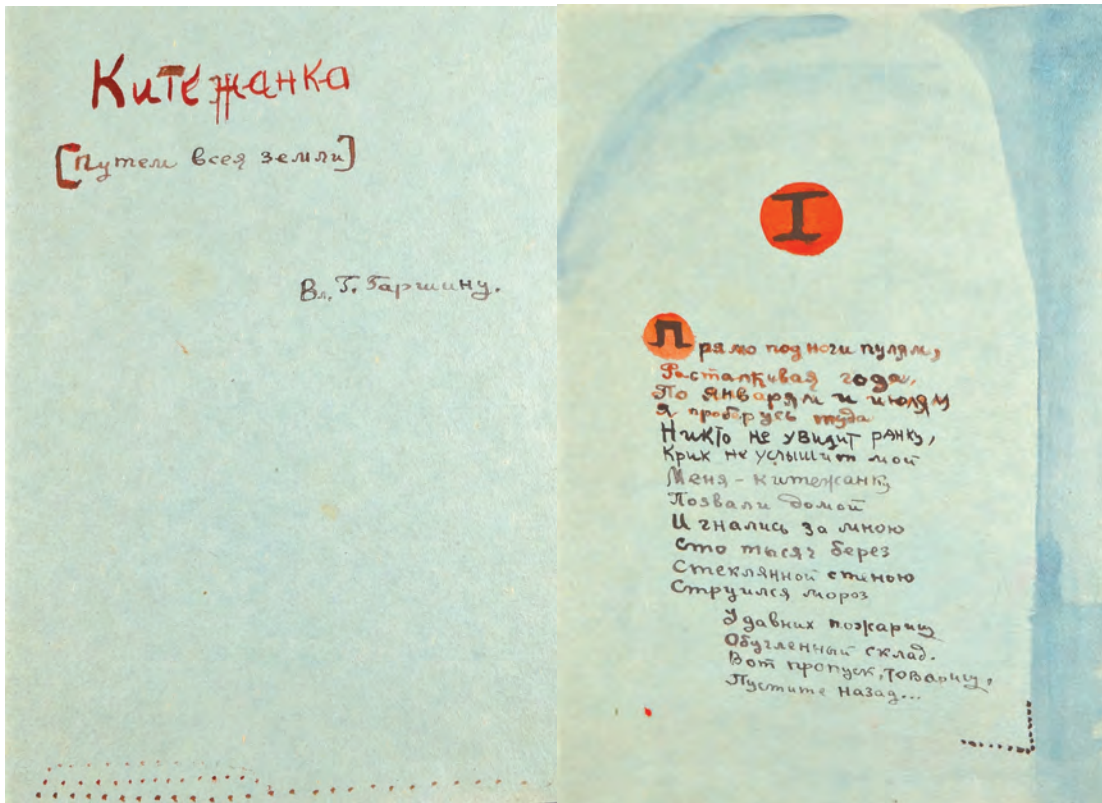 Китежанка
[Путем всея земли]
Вл. Г. Гаршину.
I
Прямо под ноги пулям,
Расталкивая года,
По январям и июлям
Я проберусь туда
Никто не увидит ранку,
Крик не услышит мой
Меня - китежанку
Позвали домой
И гнались за мною
Сто тысяч берез
Стеклянной стеною
Струился мороз
У давних пожарищ
Обугленный склад.
Вот пропуск, товарищ,
Пустите назад...